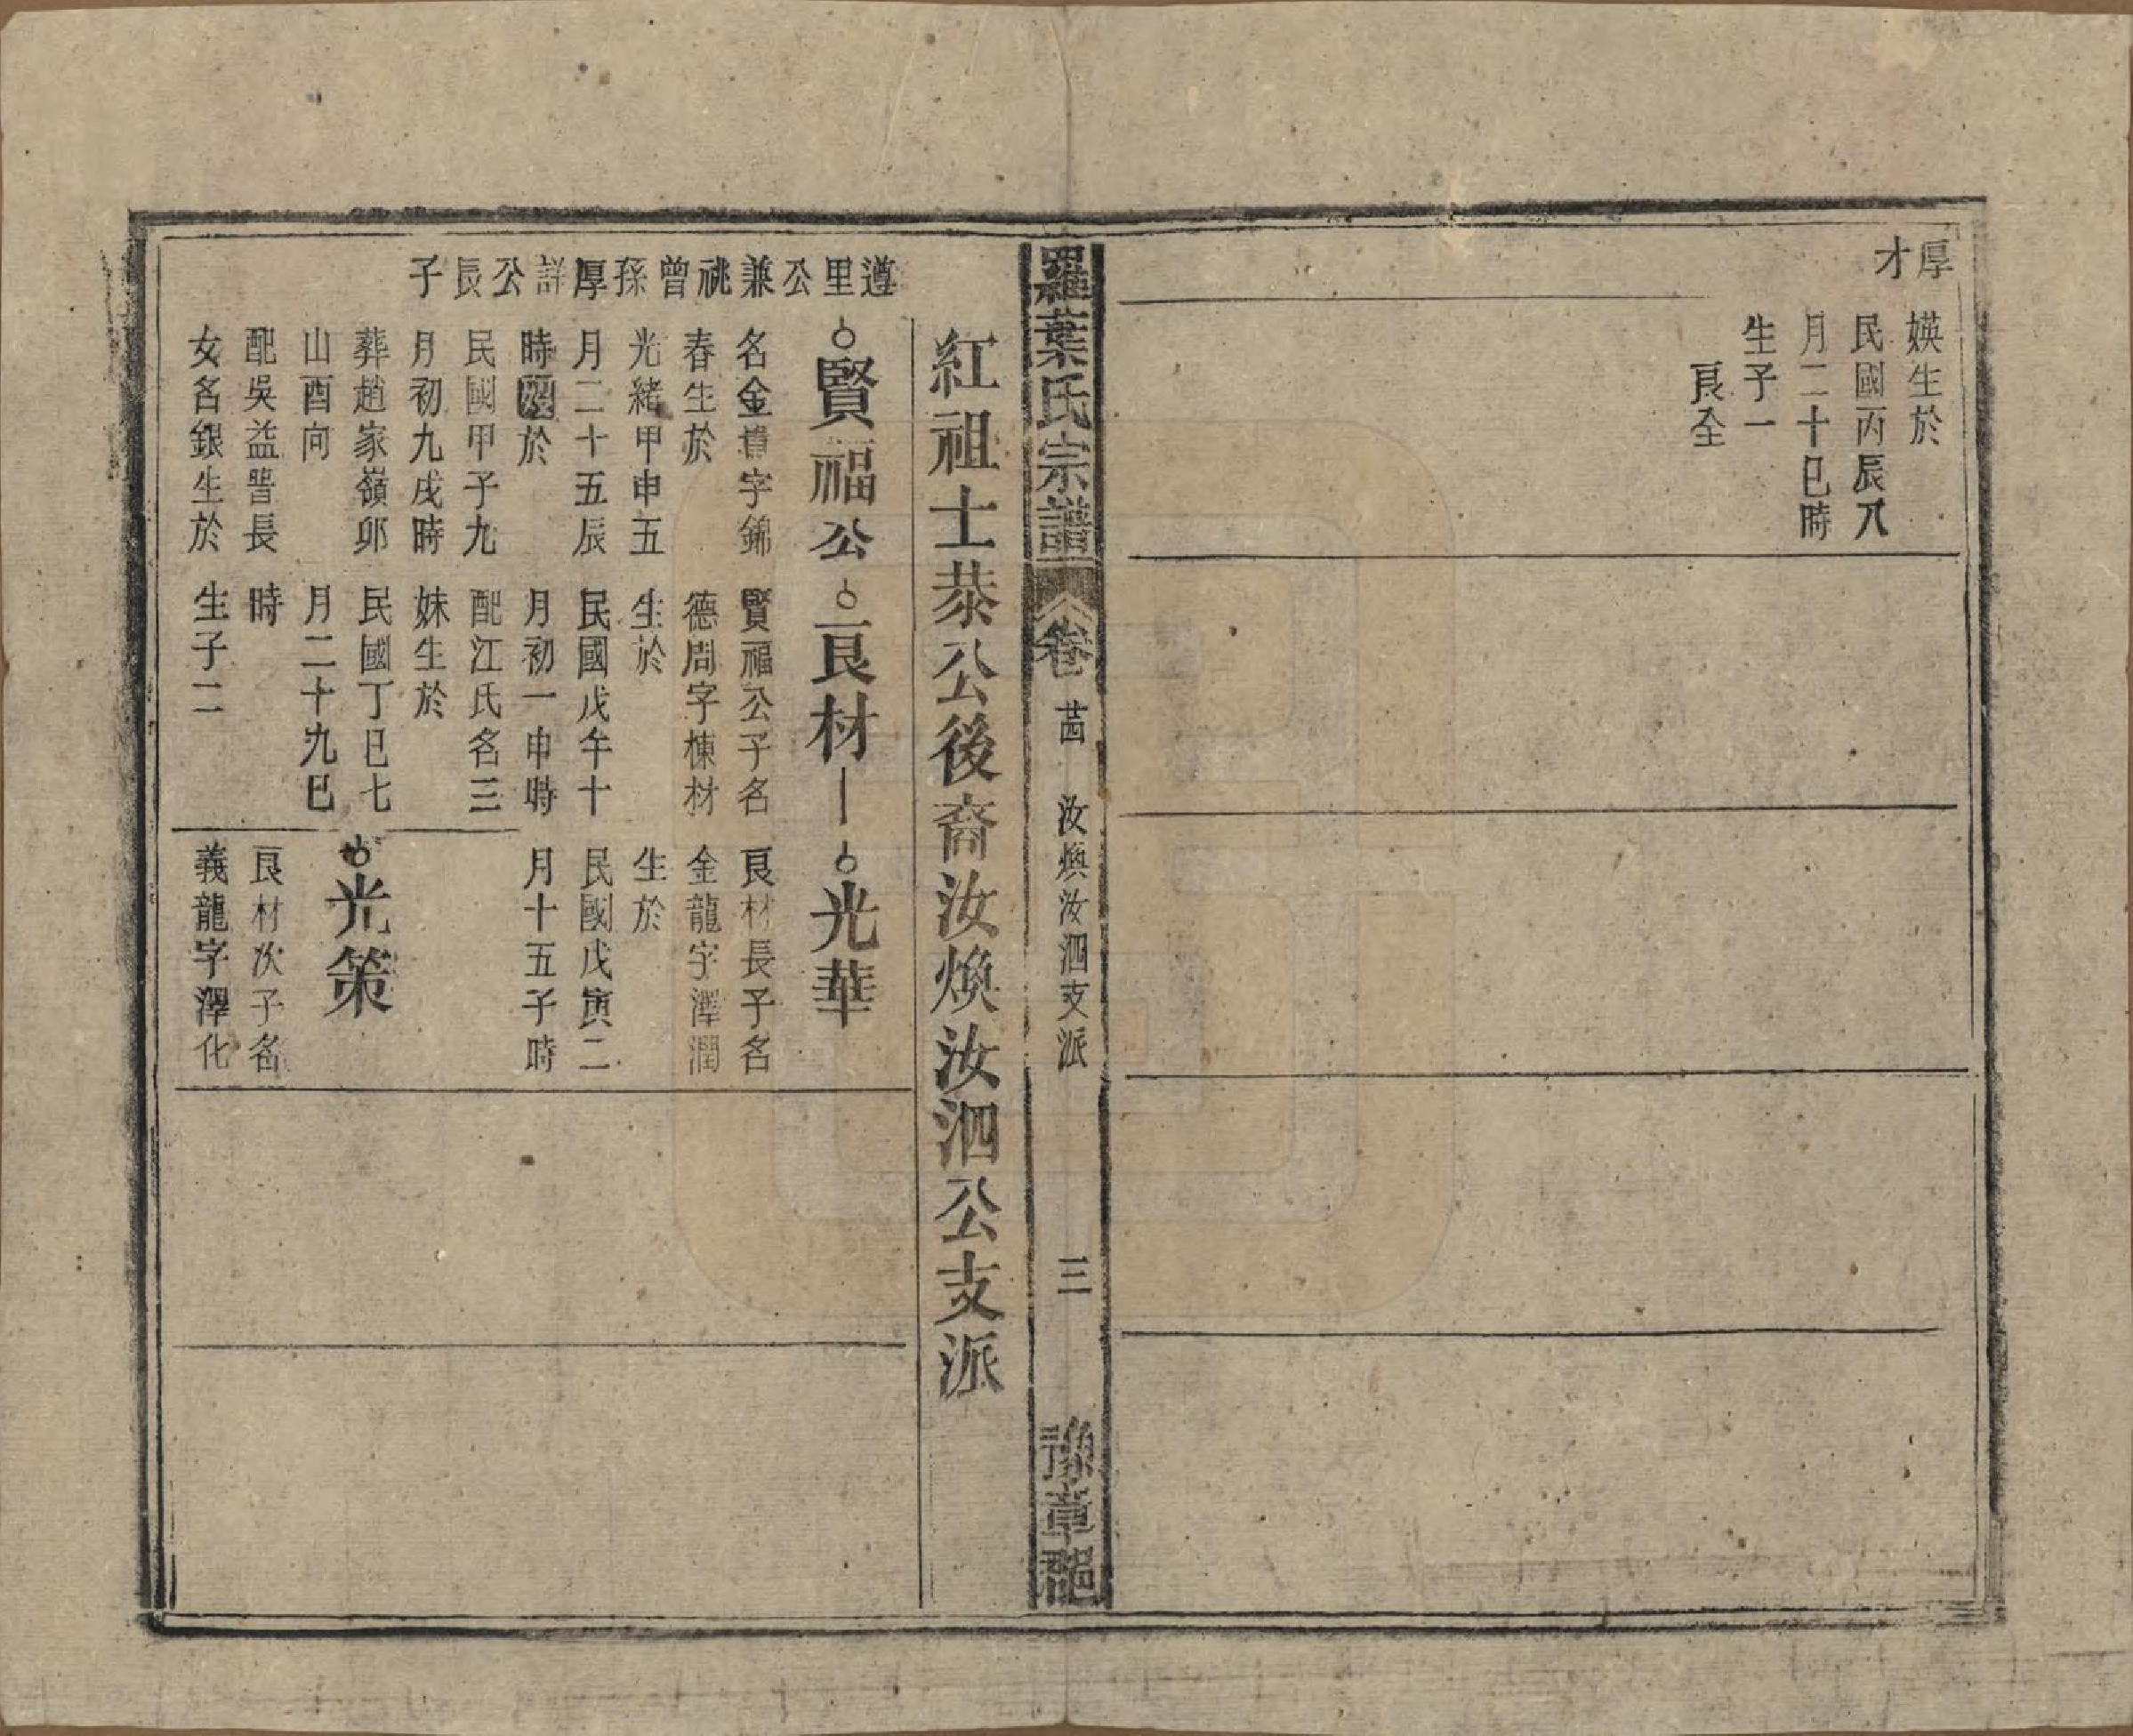 厚才
媖生於
民國丙辰八
月二十巳時
生子一
良全
羅葉氏宗譜 卷 茁 汝煥汝泗支派 三 豫章郡
紅祖士恭公後裔汝煥汝泗公支派
遵里公兼祧曾孫厚詳公長子
賢福公
名金貴字錦
春生於
光緒甲申五
月二十五辰
時歿於
民國甲子九
月初九戌時
葬趙家嶺卯
山酉向
配吳益謍長
女名銀生於
良材
賢福公子名
德周字棟材
生於
民國戊午十
月初一申時
配江氏名三
妹生於
民國丁巳七
月二十九巳
時
生子二
光華
良材長子名
金龍字澤潤
生於
民國戊寅二
月十五子時
光策
良材次子名
義龍字澤化